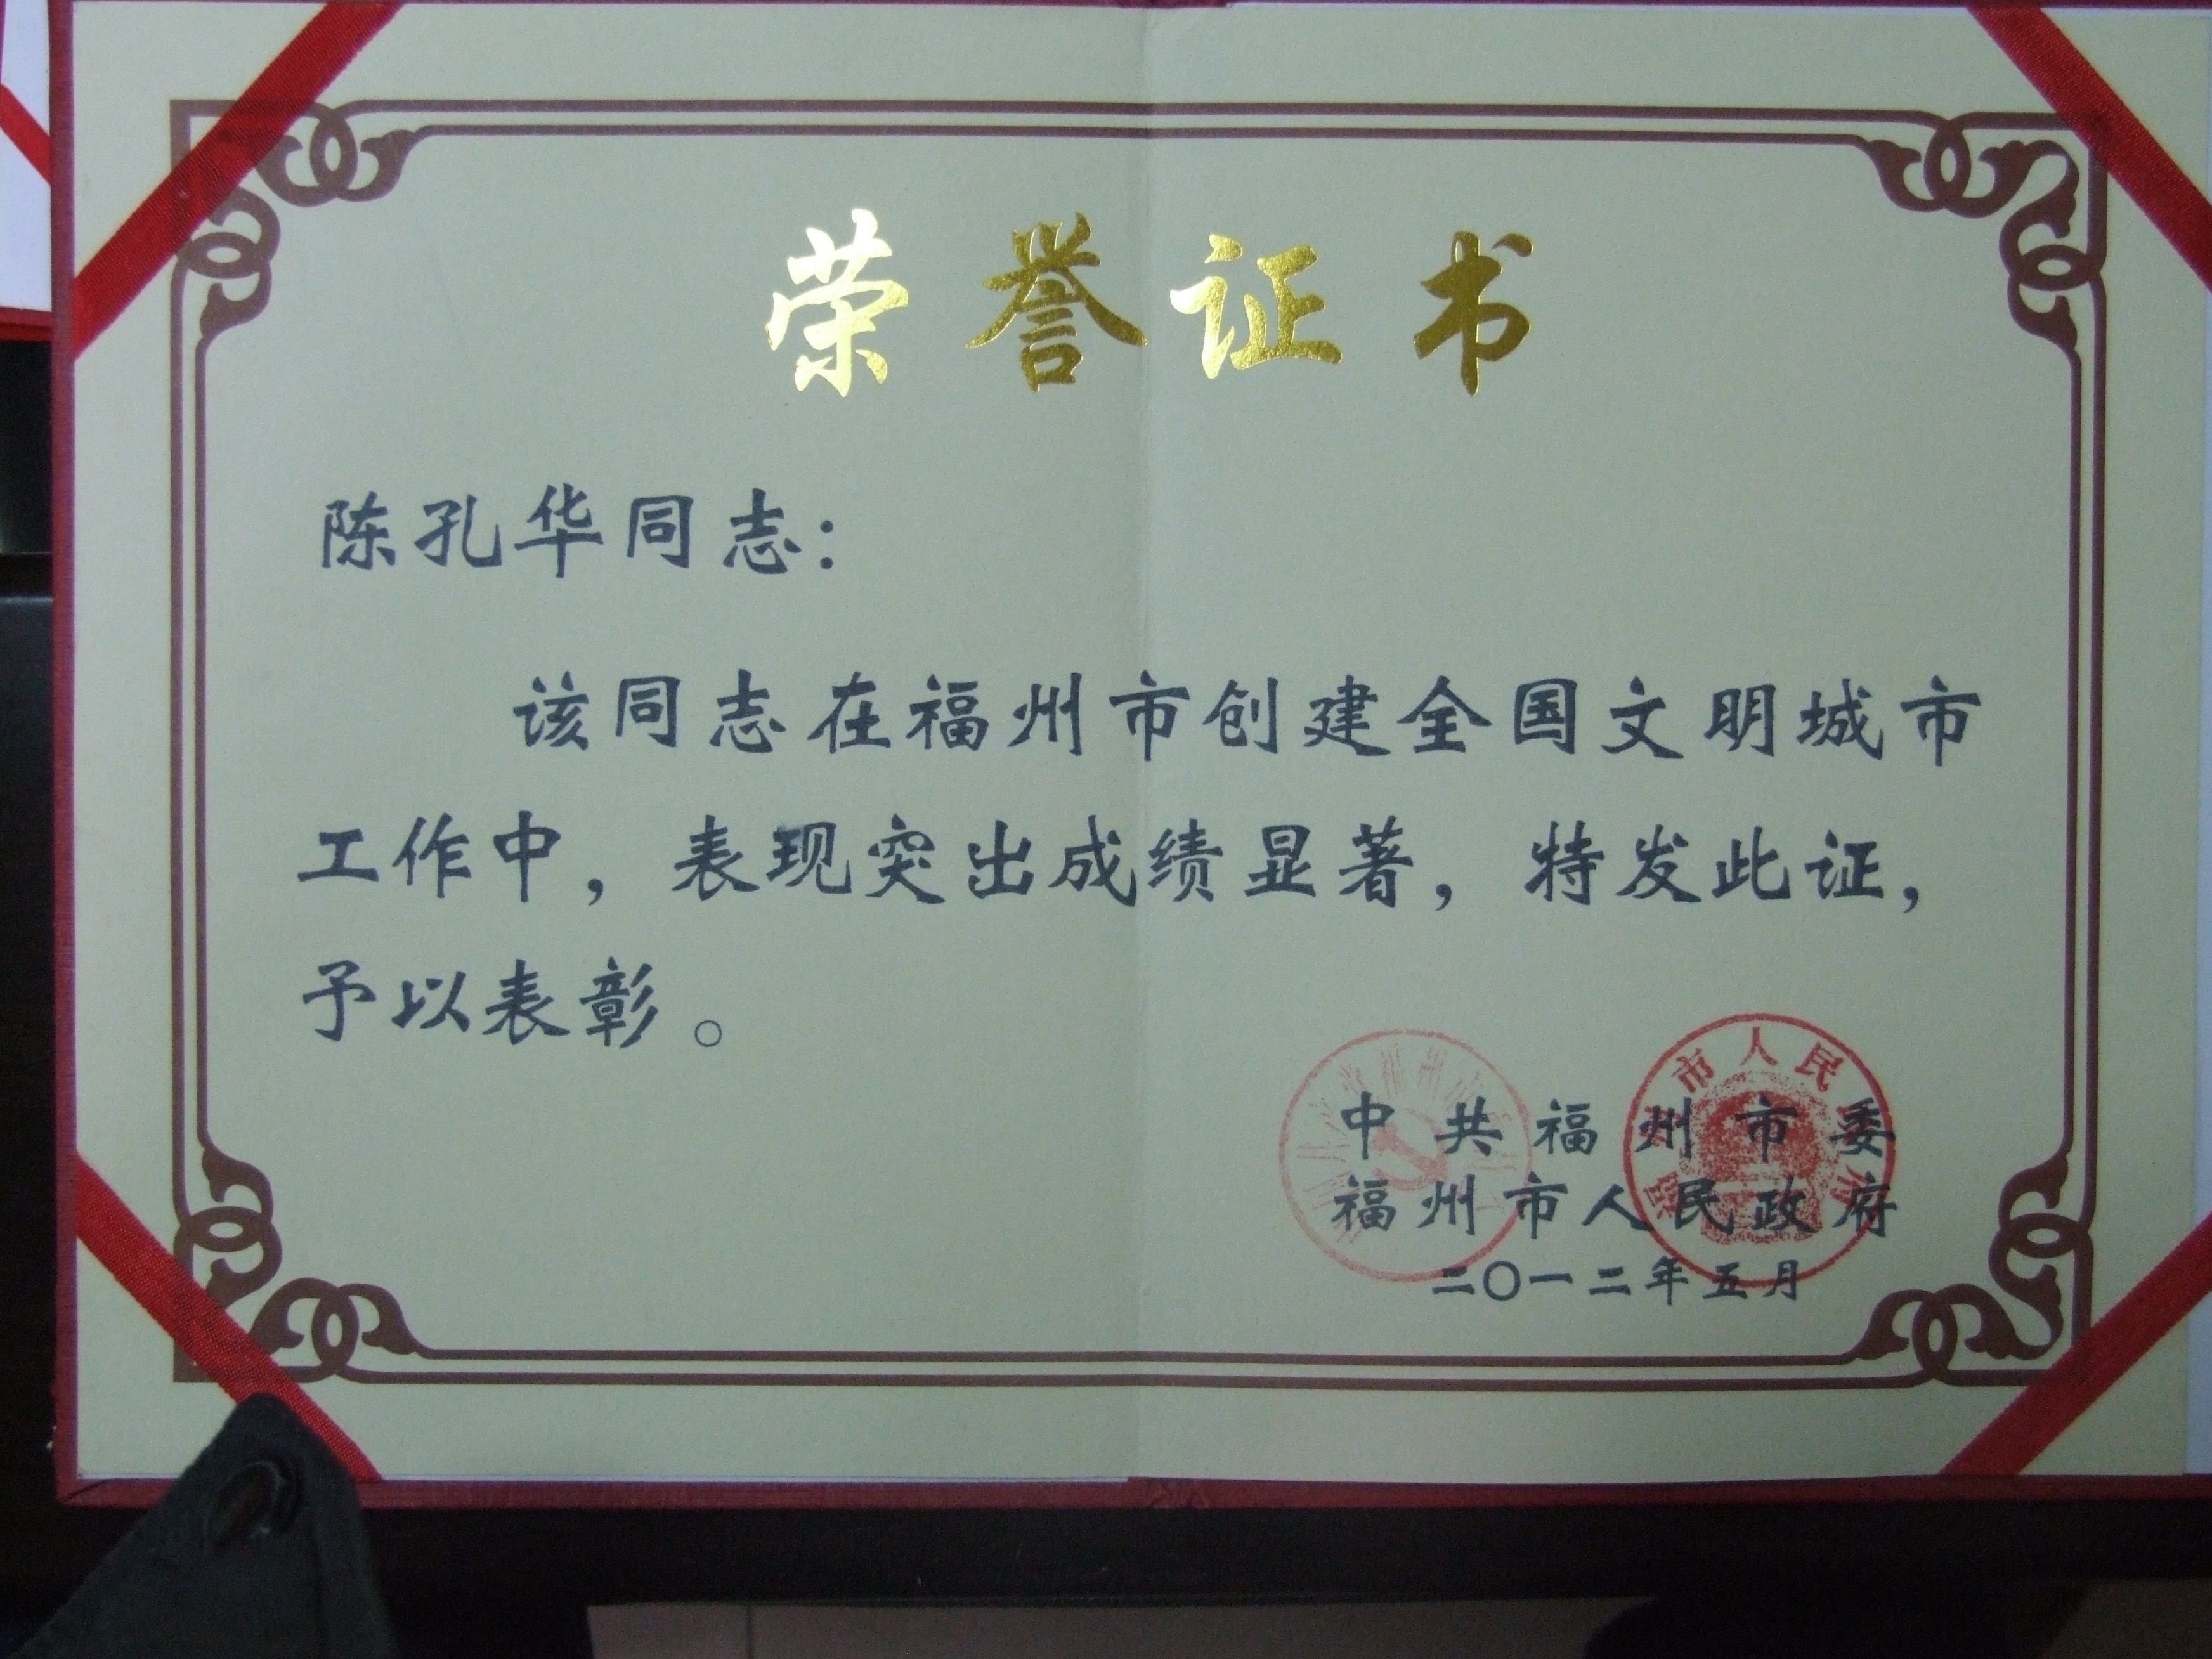 荣誉证书
陈孔华同志：
该同志在福州市创建全国文明城市
工作中，表现突出成绩显著，特发此证，
予以表彰。
中共福州市委
福州市人民政府
二〇一二年五月
市人民